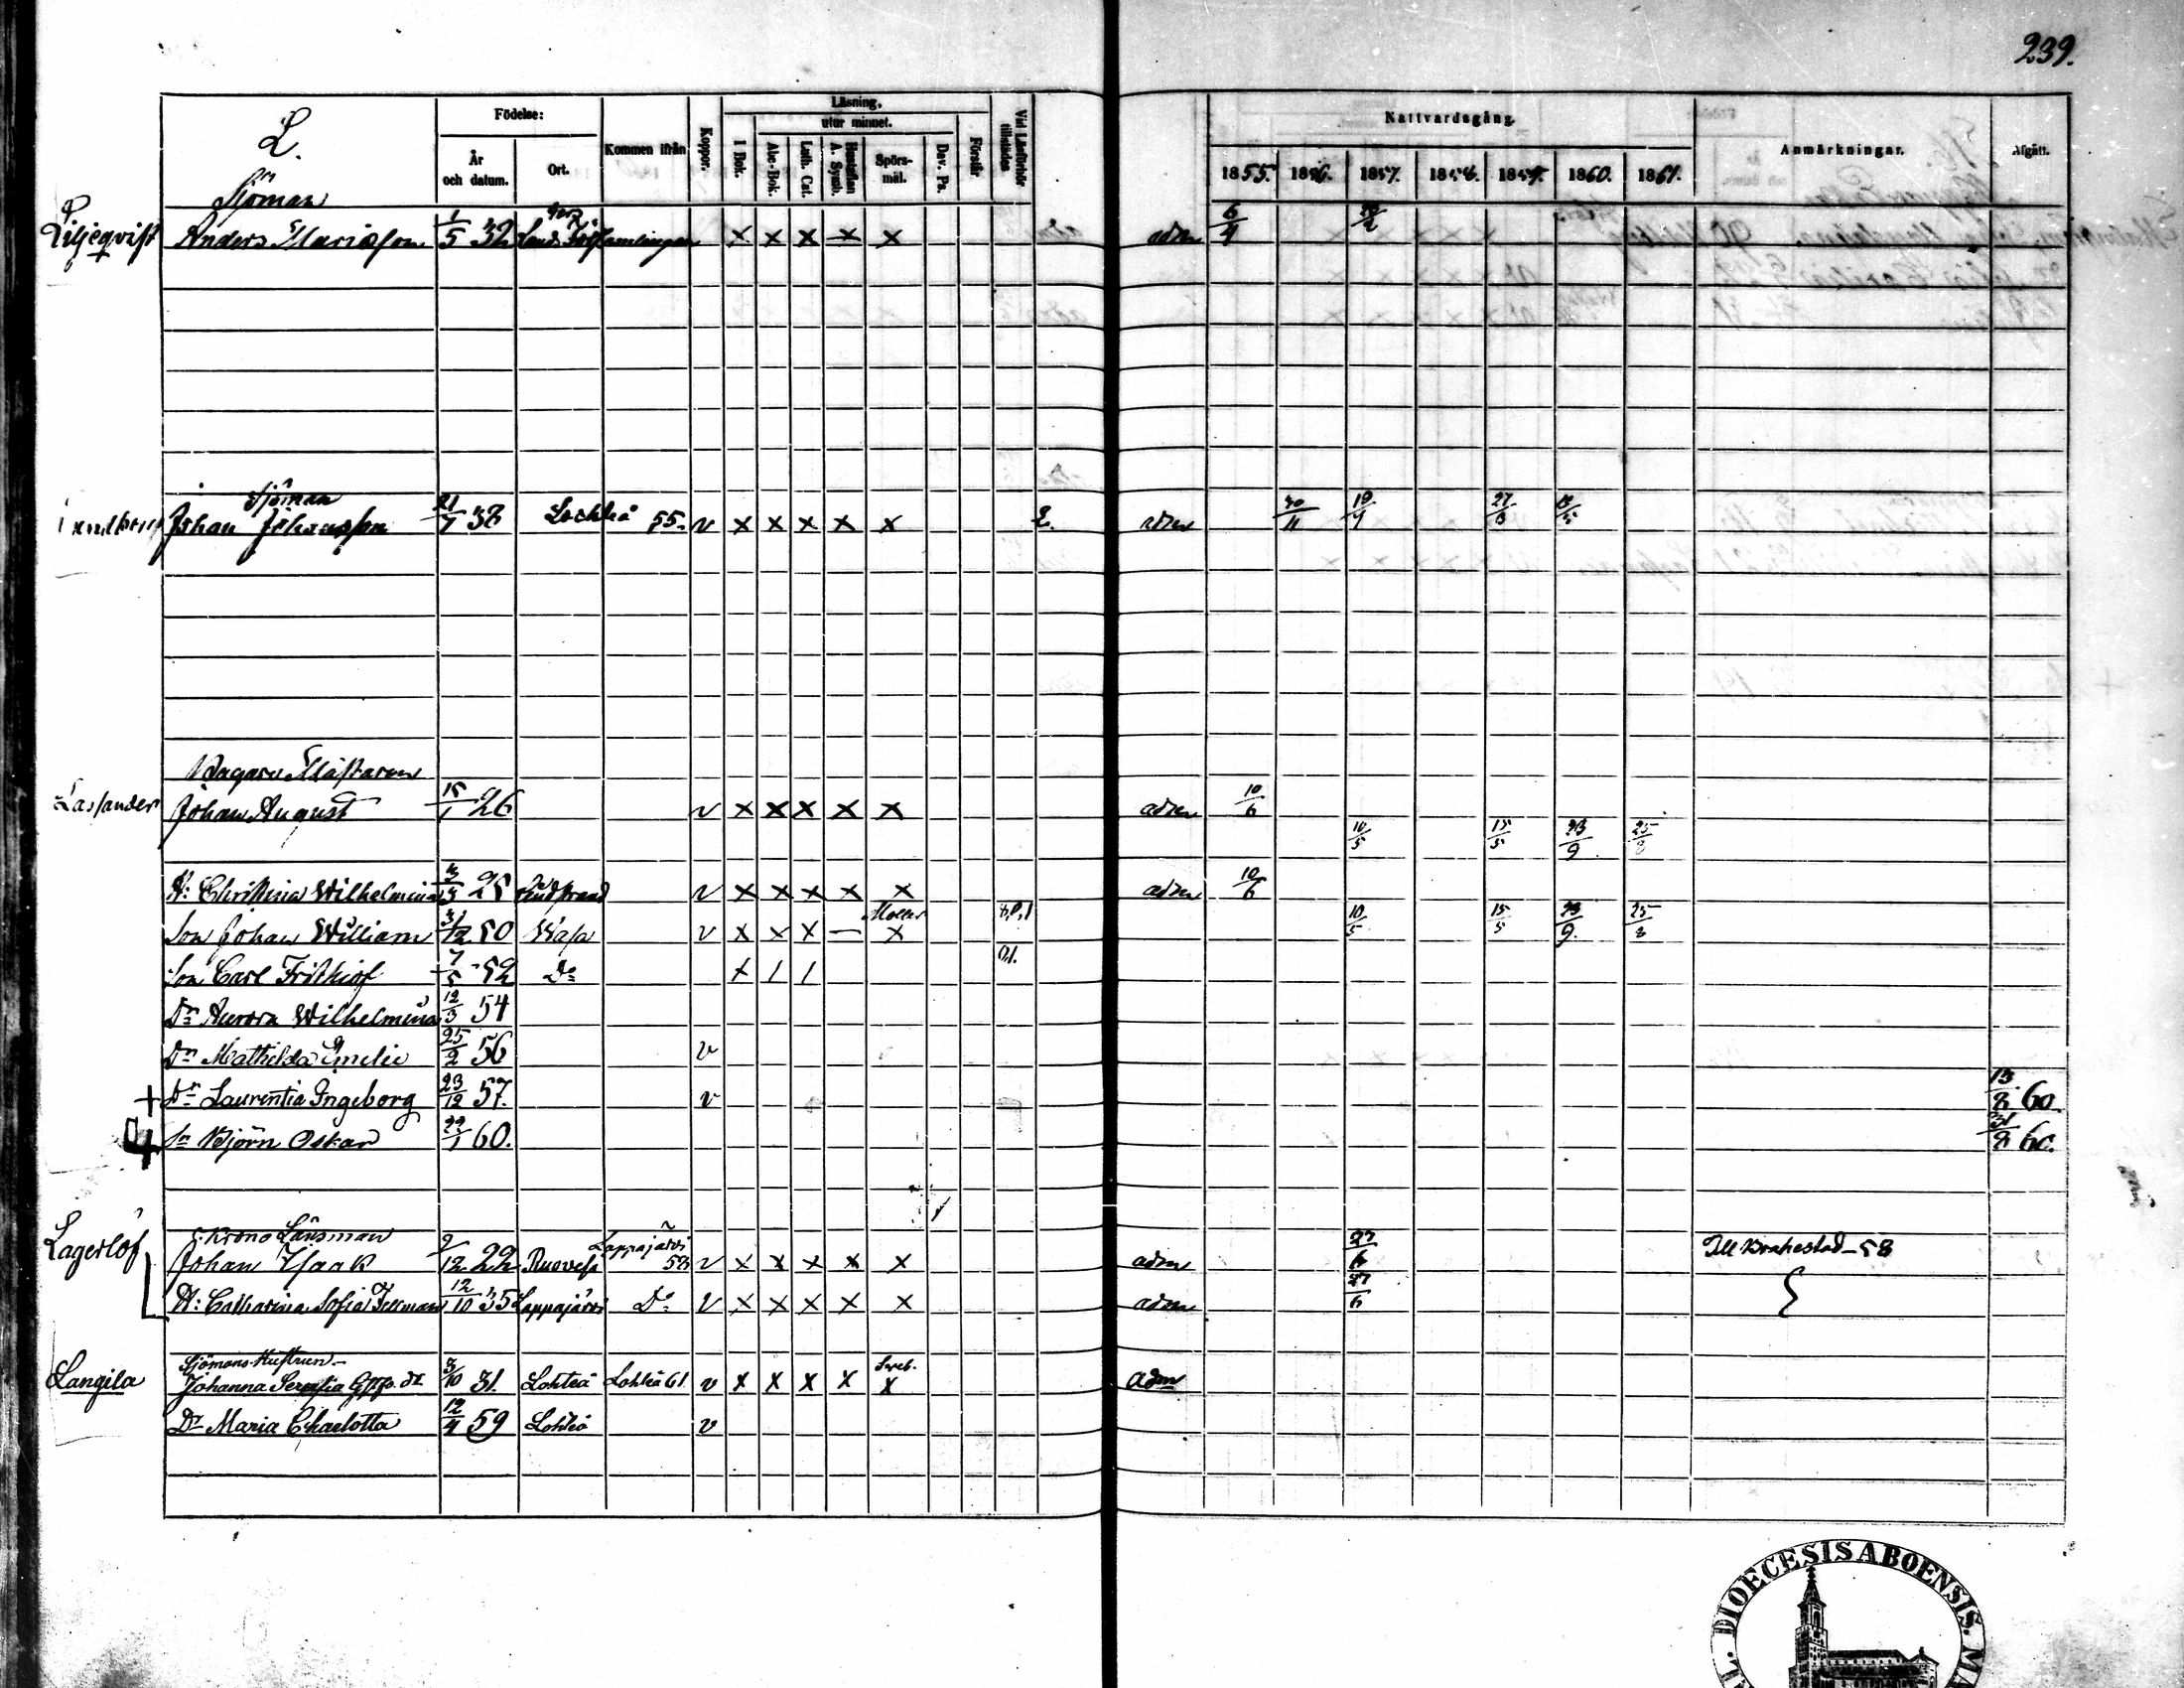 239.
L.
Födelse:
År och datum.
Ort.
Kommen ifrån
Koppor.
Läsning,
utur minnet.
I Bok.
Abc-Bok.
Luth. Cat.
Hustaflan A. Symb.
Spörsmål.
Dav. Ps.
Förstår
Vid Läsförhör tillstädes
Nattvardsgång.
1855. 1856. 1857. 1858. 1859. 1860. 1861.
Anmärkningar.
Afgått.
Sjöman
Liljeqvist Anders Mariæson 1/5 32 Land x x x x x adm 6/4
Sjöman
Johan Johansson 21/7 38 Lochteå 55. v x x x x x adm 30/11 19/7 27/3
Bagare Mästaren
Johan August 15/1 26 v x x x x x adm 10/6
10/5 15/5 23/9 25/8
H: Christina Wilhelmina 25 v x x x x x adm 10/6
Son Johan William 3/12 50 Wasa v x x x — x 10/5 15/5 23/9 25/8
Son Carl Frithiof 7/5 52 Do x / /
Dr Aurora Wilhelmina 12/3 54
Dr Mathilda Emelie 25/2 56 v
+ Dr Laurentia Ingeborg 23/12 57. v 13/8 60.
Sn Björn Oskar 22/1 60. 31/8 60.
Krono Länsman
Lagerlöf Johan Isaak 9/12 22 Ruovesi Lappajärvi 58 v x x x x x adm 27/6 Till Brahestad - 58
H: Catharina Sofia Fellman 12/10 35 Lappajärvi Do v x x x x x adm 27/6
Sjömans Hustrun
Langila Johanna Serafia 3/10 31. Lohteå Lohteå 61. v x x x x x adm
Dr Maria Charlotta 12/4 59 Lohteå v
DIOECESIS ABOENSIS.